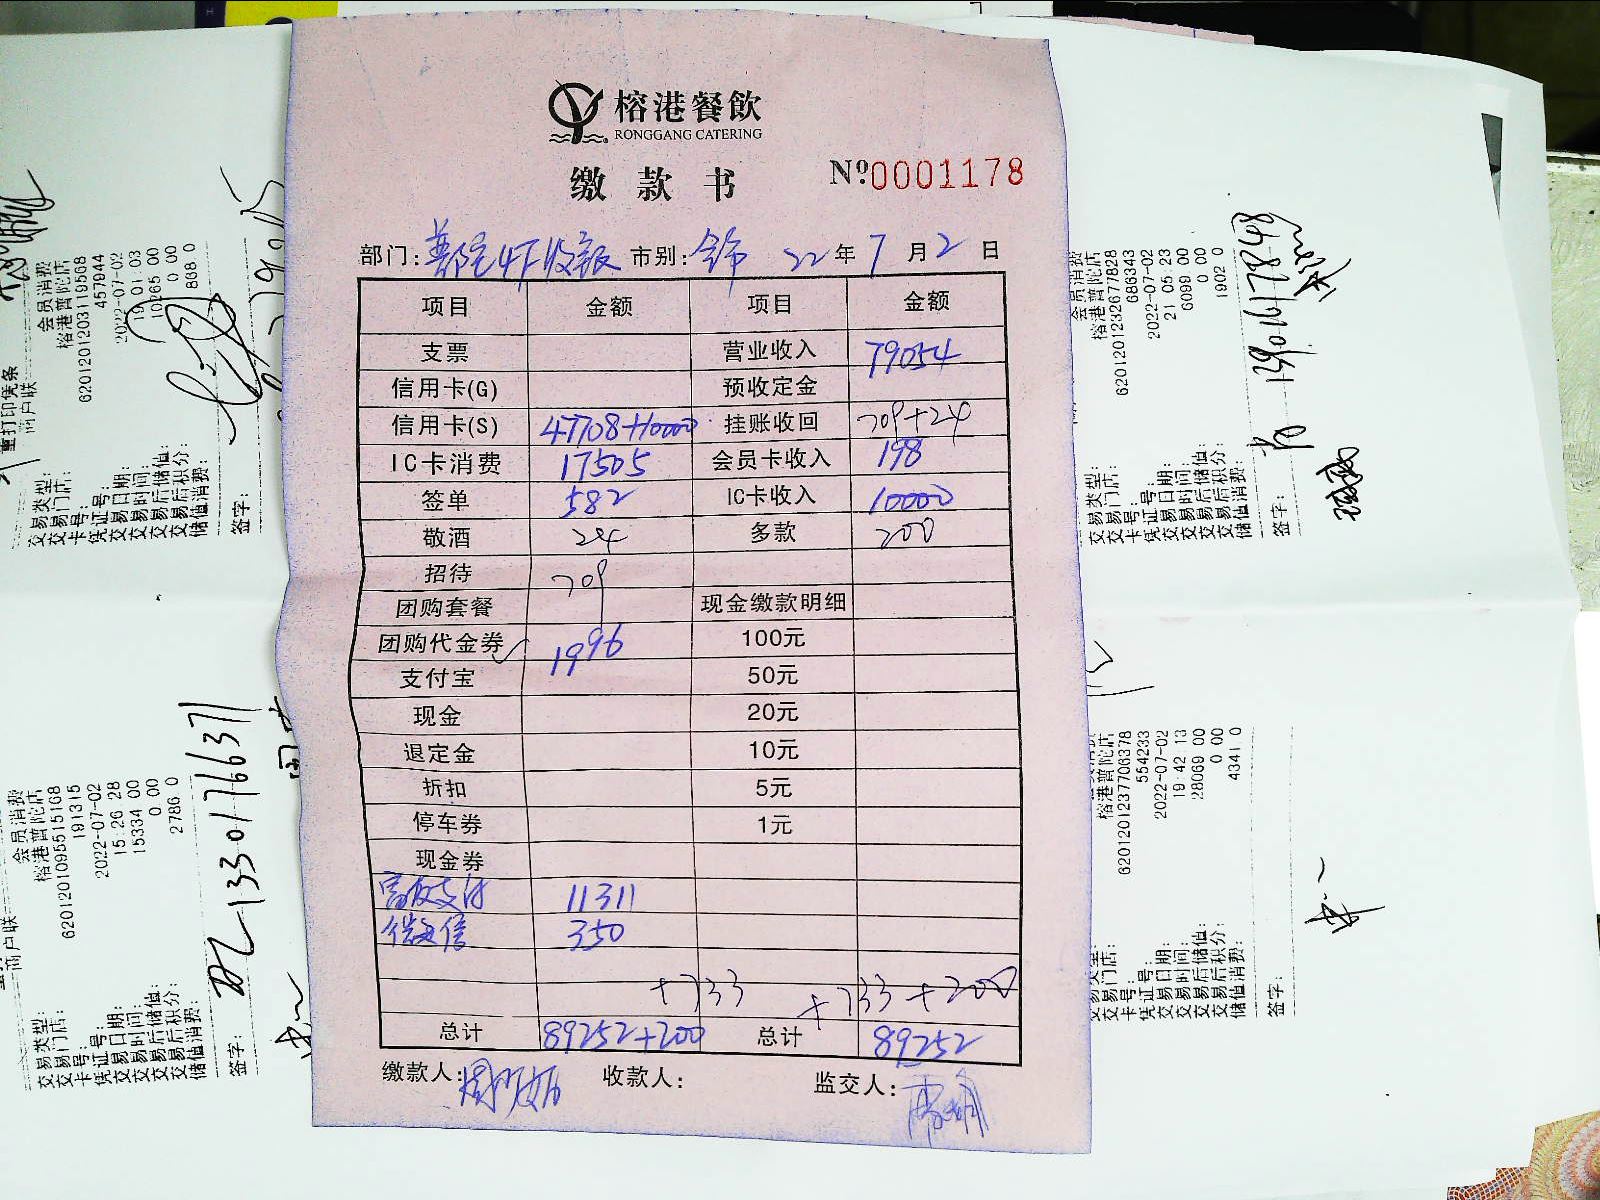 榕港餐飲
RONGGANG CATERING
缴款书 №0001178
部门:普陀4F收银 市别:全市 22年7月2日
项目 金额 项目 金额
支票 营业收入 79054
信用卡(G) 预收定金
信用卡(S) 47708+10000 挂账收回 709+24
IC卡消费 17505 会员卡收入 198
签单 582 IC卡收入 10000
敬酒 24 多款 200
招待 709
团购套餐 现金缴款明细
团购代金券 1996 100元
支付宝 50元
现金 20元
退定金 10元
折扣 5元
停车券 1元
现金券
11311
微信 350
+733 +733+200
总计 89252+200 总计 89252
缴款人: 收款人: 监交人:
重打印凭条
商户联
交易类型: 会员消费
交易门店: 榕港普陀店
卡号: 6201201203119568
凭证号: 457944
交易日期: 2022-07-02
交易时间: 19 01 03
交易后储值: 10265 00
交易后积分: 0 00
储值消费: 868 0
签字:
商户联
交易类型: 会员消费
交易门店: 榕港普陀店
卡号: 6201201095515168
凭证号: 191315
交易日期: 2022-07-02
交易时间: 15 26 28
交易后储值: 15334 00
交易后积分: 0 00
储值消费: 2786 0
签字:
13301766371
交易类型: 会员消费
交易门店: 榕港普陀店
卡号: 6201201232677828
凭证号: 686343
交易日期: 2022-07-02
交易时间: 21 05 23
交易后储值: 6099 00
交易后积分: 0 00
储值消费: 1902 0
签字:
交易类型: 会员消费
交易门店: 榕港普陀店
卡号: 6201201237706378
凭证号: 554233
交易日期: 2022-07-02
交易时间: 19 42 13
交易后储值: 28069 00
交易后积分: 0 00
储值消费: 4341 0
签字: